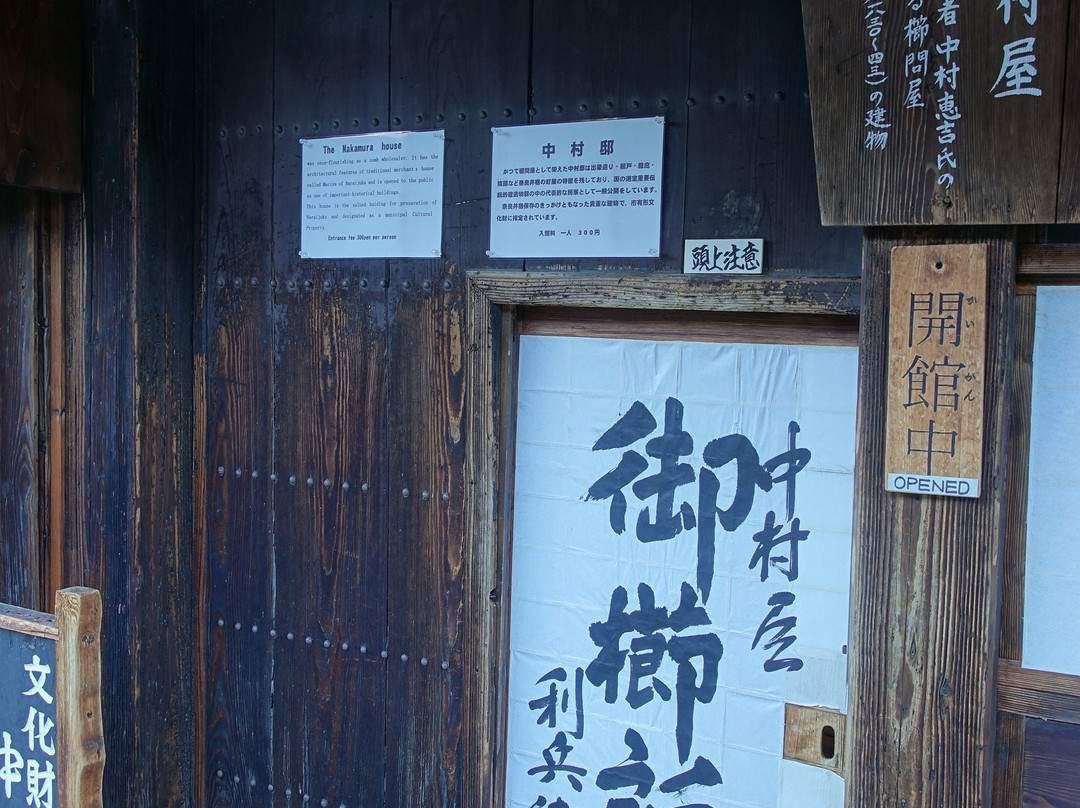 The Nakamura house
was once-flourishing as a comb wholesaler. It has the
architectural features of traditional merchant's house
called Machiya of Naraijuku and is opened to the public
as one of important historical buildings.
This house is the valued building for preservation of
Naraijuku and designated as a municipal Cultural
Property.
Entrance fee 300yen per person
中村邸
かつて櫛問屋として栄えた中村邸は出梁造り・蔀戸・庭庭・
猿頭など奈良井宿の町屋の特徴を残しており、国の選定重要伝
統的建造物群の中の代表的な民家として一般公開をしています。
奈良井宿保存のきっかけともなった貴重な建物で、市有形文
化財に指定されています。
入館料 一人 300円
頭上注意
村屋
者 中村恵吉氏の
る櫛問屋
八三〇〜四三)の建物
開館中
かいかん
OPENED
中村屋
御櫛
利兵
文化財
中